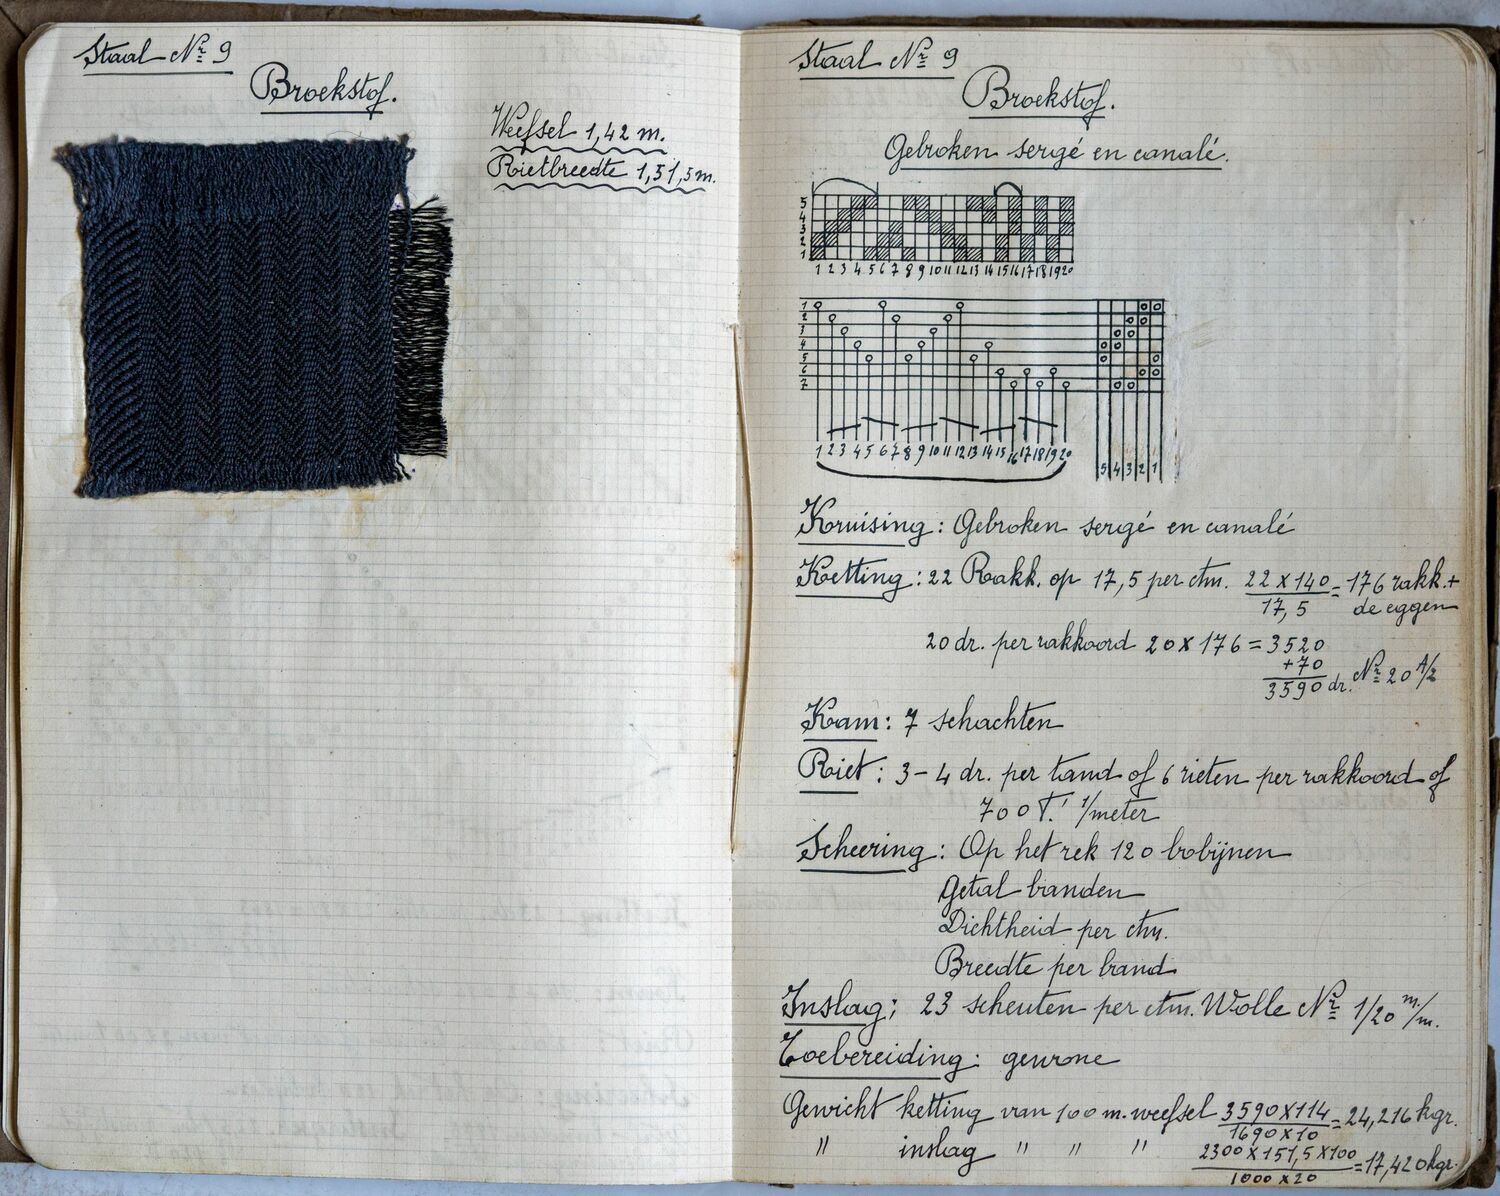 Staal Nr 9
Broekstof.
Weefsel 1,42 m.
Rietbreedte 1,51,5 m.
Staal Nr 9
Broekstof.
Gebroken sergé en canalé.
5
4
3
2
1
1 2 3 4 5 6 7 8 9 10 11 12 13 14 15 16 17 18 19 20
1
2
3
4
5
6
7
5 4 3 2 1
1 2 3 4 5 6 7 8 9 10 11 12 13 14 15 16 17 18 19 20
Kruising: Gebroken sergé en canalé
Ketting: 22 Rakk. op 17,5 per ctm. 22 x 140 / 17,5 = 176 rakk. +
de eggen
20 dr. per rakkoord 20 x 176 = 3520
+70
3590 dr. Nr 20 A/2
Kam: 7 schachten
Riet: 3-4 dr. per tand of 6 rieten per rakkoord of
700 T. 1/meter
Scheering: Op het rek 120 bobijnen
Getal banden
Dichtheid per ctm.
Breedte per band
Inslag: 23 scheuten per ctm. Wolle Nr 1/20 m/m.
Toebereiding: gewone
Gewicht ketting van 100 m. weefsel 3590 x 114 / 1690 x 10 = 24,216 kgr.
" inslag " " " 2300 x 151,5 x 100 / 1000 x 20 = 17,420 kgr.